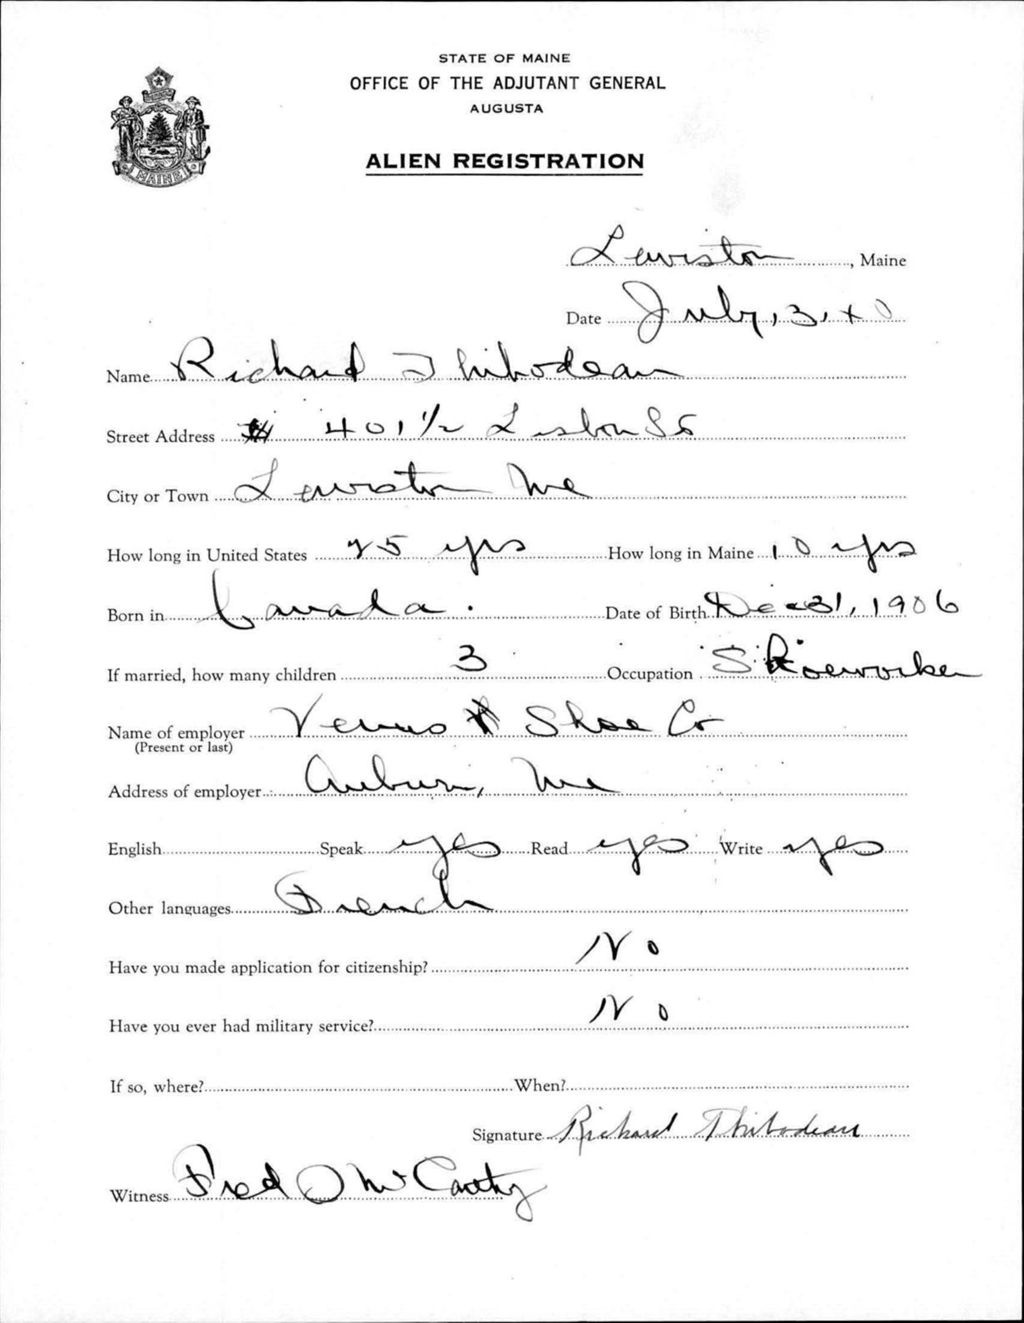 STATE OF MAINE
OFFICE OF THE ADJUTANT GENERAL
AUGUSTA
ALIEN REGISTRATION
MAINE
Lewiston, Maine
Date July, 3, 40
Name Richard Thibodeau
Street Address # 401 1/2 Lisbon St
City or Town Lewiston Me
How long in United States 25 yrs How long in Maine 10 yrs
Born in Canada. Date of Birth Dec 31, 1906
If married, how many children 3 Occupation Shoeworker
Name of employer Venus Shoe Co
(Present or last)
Address of employer Auburn, Me
English Speak yes Read yes Write yes
Other languages French
Have you made application for citizenship? No
Have you ever had military service? No
If so, where? When?
Signature Richard Thibodeau
Witness Fred O McCarthy